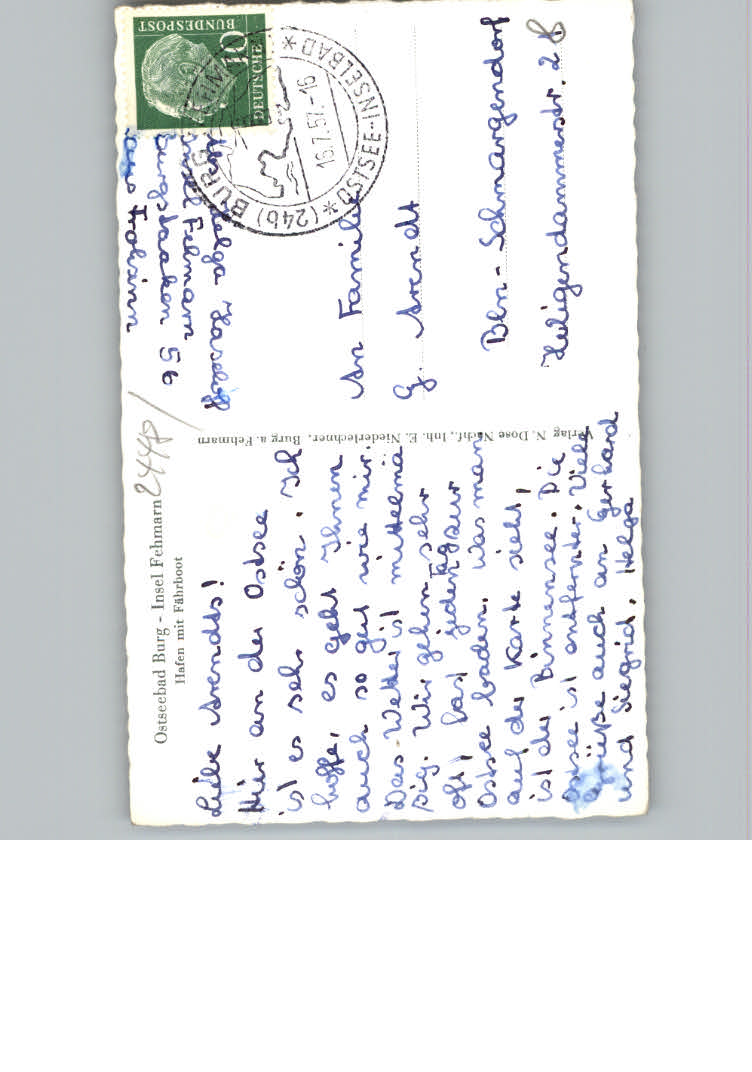 Ostseebad Burg - Insel Fehmarn
Hafen mit Fährboot
2440
Liebe Arendts!
Hier an der Ostsee
ist es sehr schön. Ich
hoffe, es geht Ihnen
auch so gut wie mir.
Das Wetter ist mittelmä
ßig. Wir gehen sehr
oft, fast jeden Tag zur
Ostsee baden. Was man
auf der Karte sieht,
ist der Binnensee. Die
Ostsee ist entfernter. Viele
Grüße auch an Gerhard
und Siegrid. Helga
Verlag N. Dose Nachf., Inh. E. Niederlechner, Burg a. Fehmarn
Helga Haseloff
Insel Fehmarn
Burgstaaken 56
DEUTSCHE
BUNDESPOST
10
(24b) BURG
OSTSEE-INSELBAD
16.7.57.-16
An Familie
G. Arendt
Bln-Schmargendorf
Heiligendammerstr. 28